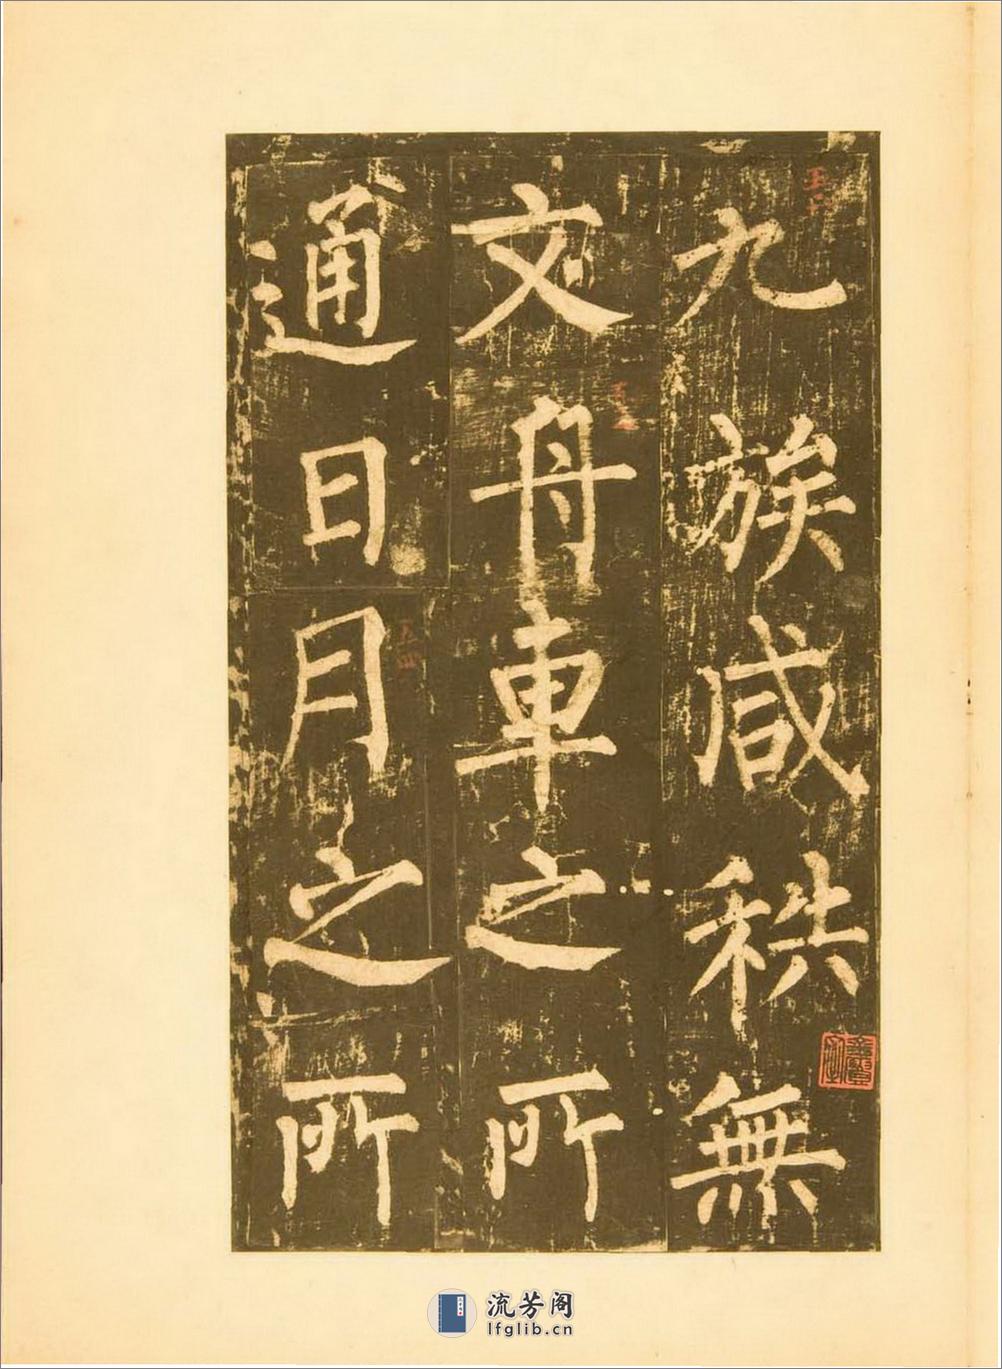 九族咸秩無
文舟車之所
通日月之所
流芳阁
lfglib.cn